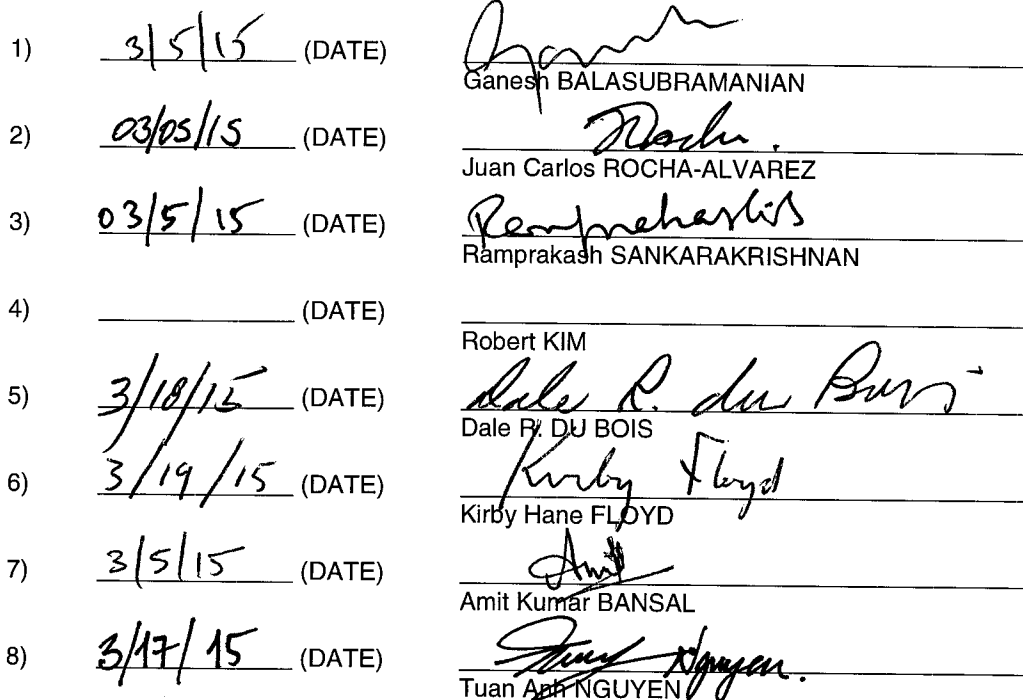 1) 3/5/15 (DATE)
Ganesh BALASUBRAMANIAN
2) 03/05/15 (DATE) JRocha.
Juan Carlos ROCHA-ALVAREZ
3) 03/5/15 (DATE) Ramprakash S
Ramprakash SANKARAKRISHNAN
4) (DATE)
Robert KIM
5) 3/18/15 (DATE) Dale R. du Bois
Dale R. DU BOIS
6) 3/19/15 (DATE) Kirby Floyd
Kirby Hane FLOYD
7) 3/5/15 (DATE) Amit
Amit Kumar BANSAL
8) 3/17/15 (DATE) Nguyen.
Tuan Anh NGUYEN